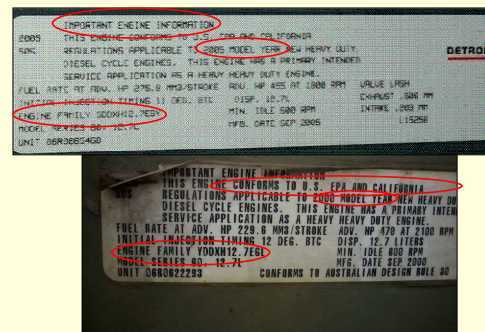 IMPORTANT ENGINE INFORMATION
2005 THIS ENGINE CONFORMS TO U.S. EPA AND CALIFORNIA
50S REGULATIONS APPLICABLE TO 2005 MODEL YEAR NEW HEAVY DUTY
DIESEL CYCLE ENGINES. THIS ENGINE HAS A PRIMARY INTENDED
SERVICE APPLICATION AS A HEAVY HEAVY DUTY ENGINE.
DETRO
FUEL RATE AT ADV. HP 275.9 MM3/STROKE ADV. HP 455 AT 1800 RPM VALVE LASH
INITIAL INJECTION TIMING 11 DEG. BTC DISP. 12.7L EXHAUST .506 MM
ENGINE FAMILY 5DDXH12.7EGY MIN. IDLE 600 RPM INTAKE .203 MM
MODEL SERIES 60, 12.7L MFG. DATE SEP 2005 L15250
UNIT
IMPORTANT ENGINE INFORMATION
THIS ENGINE CONFORMS TO U.S. EPA AND CALIFORNIA
50S REGULATIONS APPLICABLE TO 2000 MODEL YEAR NEW HEAVY DU
DIESEL CYCLE ENGINES. THIS ENGINE HAS A PRIMARY INTEN
SERVICE APPLICATION AS A HEAVY HEAVY DUTY ENGINE.
FUEL RATE AT ADV. HP 229.6 MM3/STROKE ADV. HP 470 AT 2100 RPM
INITIAL INJECTION TIMING 12 DEG. BTC DISP. 12.7 LITERS
ENGINE FAMILY YDDXH12.7EGL MIN. IDLE 600 RPM
MODEL SERIES 60, 12.7L MFG. DATE SEP 2000
UNIT 06R0622293 CONFORMS TO AUSTRALIAN DESIGN RULE 30